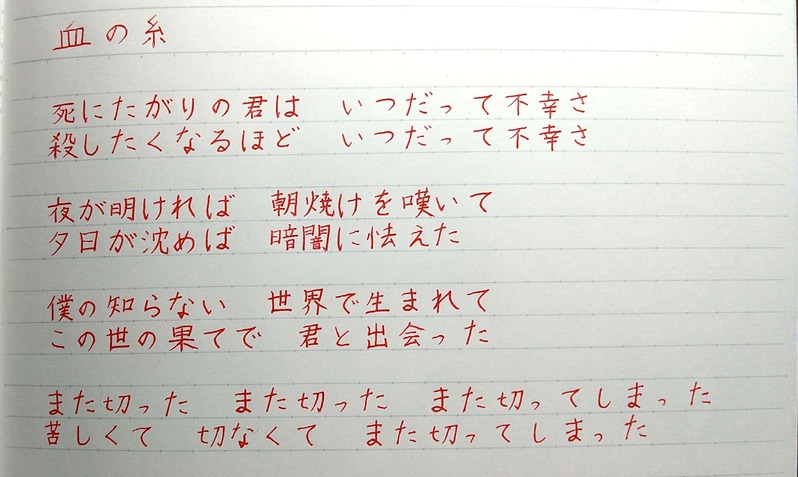 血の糸
死にたがりの君は　いつだって不幸さ
殺したくなるほど　いつだって不幸さ
夜が明ければ　朝焼けを嘆いて
夕日が沈めば　暗闇に怯えた
僕の知らない　世界で生まれて
この世の果てで　君と出会った
また切った　また切った　また切ってしまった
苦しくて　切なくて　また切ってしまった